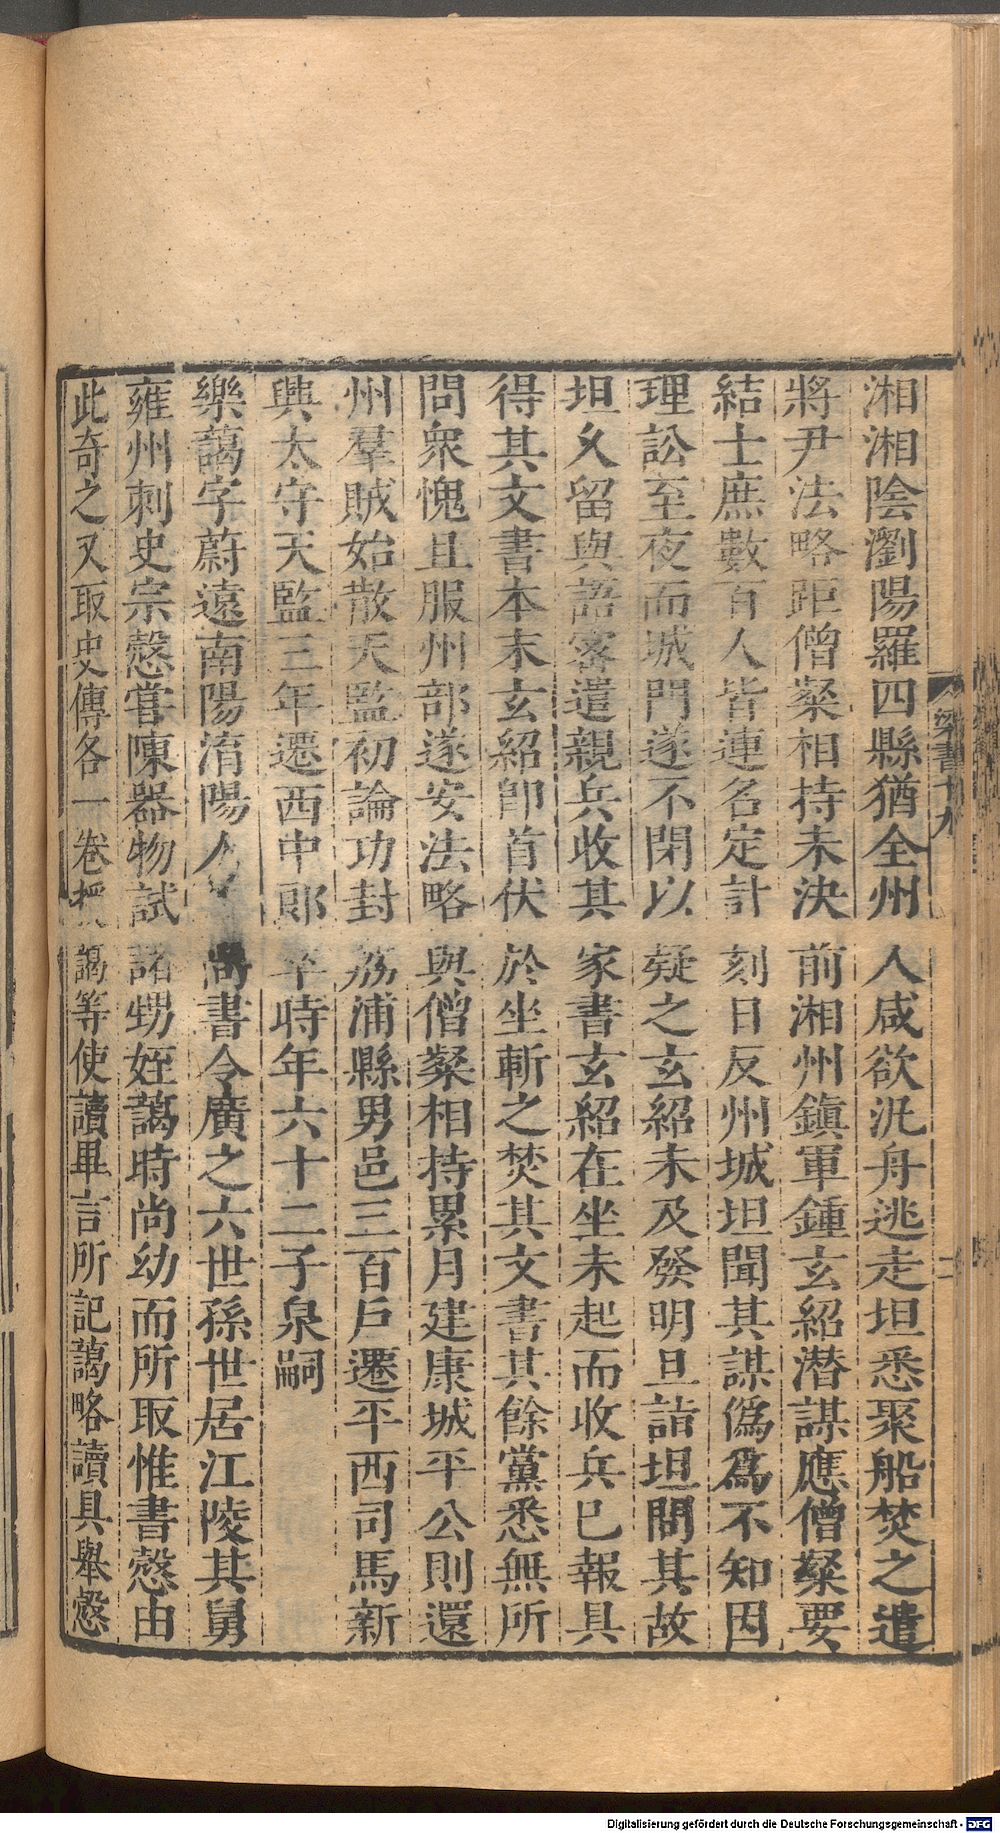 湘湘陰瀏陽羅四縣猶全州人咸欲汎舟逃走坦悉聚船焚之遣
將尹法略距僧粲相持未決前湘州鎮軍鍾玄紹潜謀應僧粲要
結士庶數百人皆連名定計刻日反州城坦聞其謀僞爲不知因
理訟至夜而城門遂不閉以疑之玄紹未及發明旦詣坦問其故
坦久留與語密遣親兵收其家書玄紹在坐未起而收兵已報具
得其文書本末玄紹卽首伏於坐斬之焚其文書其餘黨悉無所
問衆愧且服州部遂安法略與僧粲相持累月建康城平公則還
州羣賊始散天監初論功封荔浦縣男邑三百戶遷平西司馬新
興太守天監三年遷西中郞卒時年六十二子泉嗣
樂藹字蔚遠南陽淯陽人尚書令廣之六世孫世居江陵其舅
雍州刺史宗慤嘗陳器物試諸甥姪藹時尚幼而所取惟書慤由
此奇之又取史傳各一卷授藹等使讀畢言所記藹略讀具舉慤
梁書十九
二
Digitalisierung gefördert durch die Deutsche Forschungsgemeinschaft - DFG